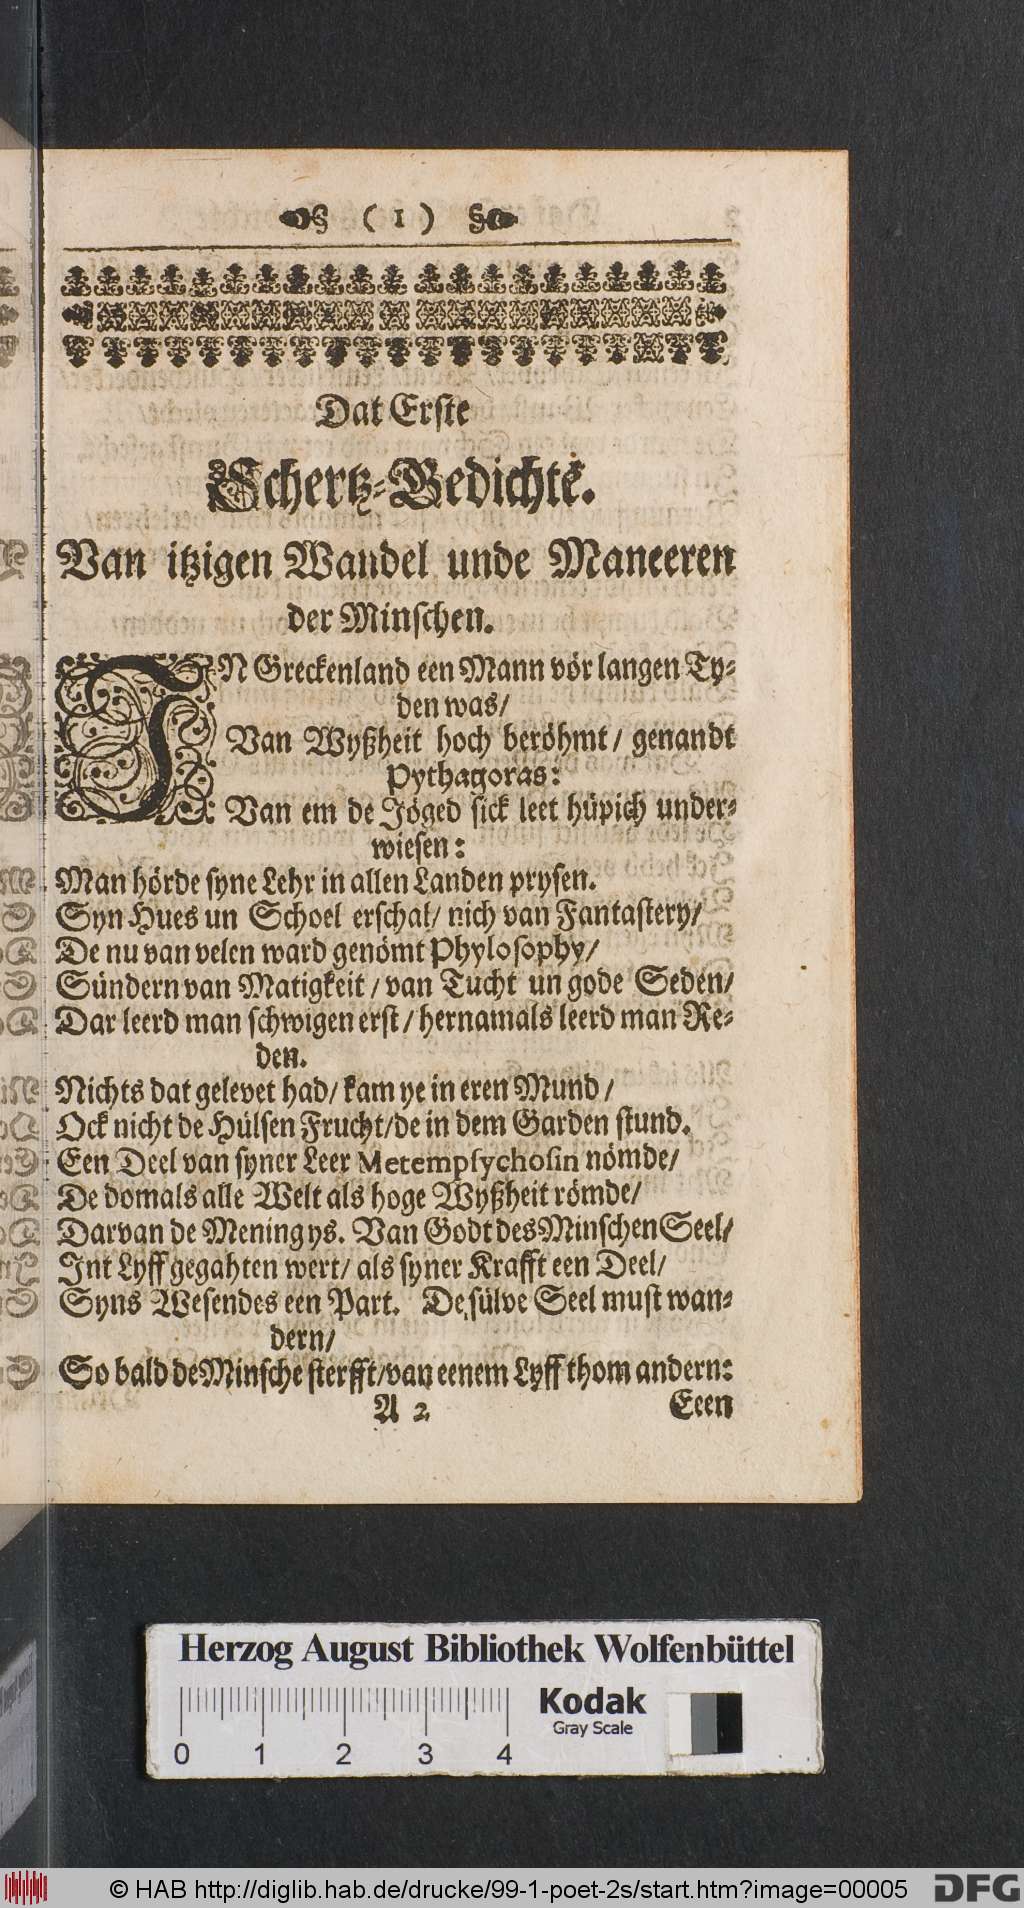 ( 1 )
Dat Erste
Schertz-Gedichte.
Van itzigen Wandel unde Maneeren
der Minschen.
IN Greckenland een Mann vör langen Ty-
den was/
Van Wyßheit hoch beröhmt/ genandt
Pythagoras:
Van em de Jöged sick leet hüpich under-
wiesen:
Man hörde syne Lehr in allen Landen prysen.
Syn Hues un Schoel erschal/ nich van Fantastery/
De nu van velen ward genömt Phylosophy/
Sündern van Matigkeit/ van Tucht un gode Seden/
Dar leerd man schwigen erst/ hernamals leerd man Re-
den.
Nichts dat gelevet had/ kam ye in eren Mund/
Ock nicht de Hülsen Frucht/de in dem Garden stund.
Een Deel van syner Leer Metempsychosin nömde/
De domals alle Welt als hoge Wyßheit römde/
Darvan de Mening ys. Van Godt des Minschen Seel/
Int Lyff gegahten wert/ als syner Krafft een Deel/
Syns Wesendes een Part. De sülve Seel must wan-
dern/
So bald de Minsche sterfft/van eenem Lyff thom andern:
A 2
Eeen
Herzog August Bibliothek Wolfenbüttel
Kodak
Gray Scale
0 1 2 3 4
© HAB http://diglib.hab.de/drucke/99-1-poet-2s/start.htm?image=00005
DFG